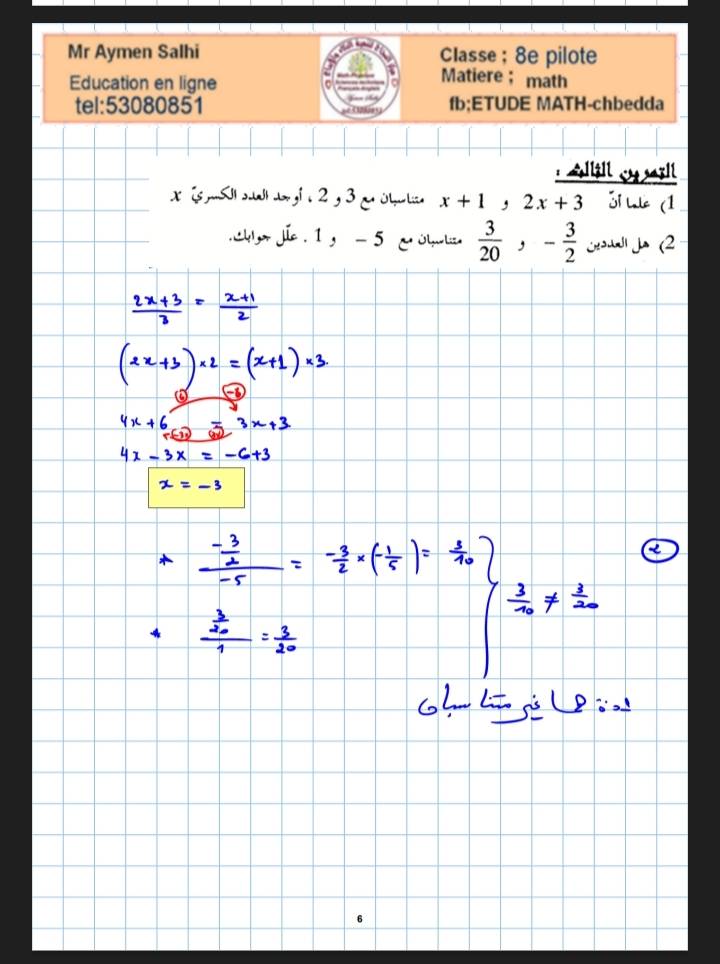 Mr Aymen Salhi
Education en ligne
tel:53080851
Classe ; 8e pilote
Matiere ; math
fb;ETUDE MATH-chbedda
التمرين الثالث :
1) علما أنّ 2x + 3 و x + 1 متناسبان مع 3 و 2 ، أوجد العدد الكسريّ x
2) هل العددين -3/2 و 3/20 متناسبان مع -5 و 1 . علّل جوابك.
(2x+3)/3 = (x+1)/2
(2x+3)×2 = (x+1)×3.
4x+6 = 3x+3
4x-3x = -6+3
x = -3
2
* (-3/2)/(-5) = -3/2 × (-1/5) = 3/10
* (3/20)/1 = 3/20
3/10 ≠ 3/20
غير متناسبان
6